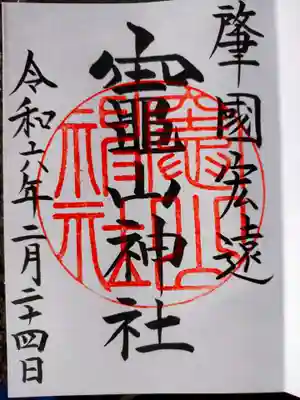 肇國宏遠
竈山神社
令和六年二月二十四日
竈山
神社